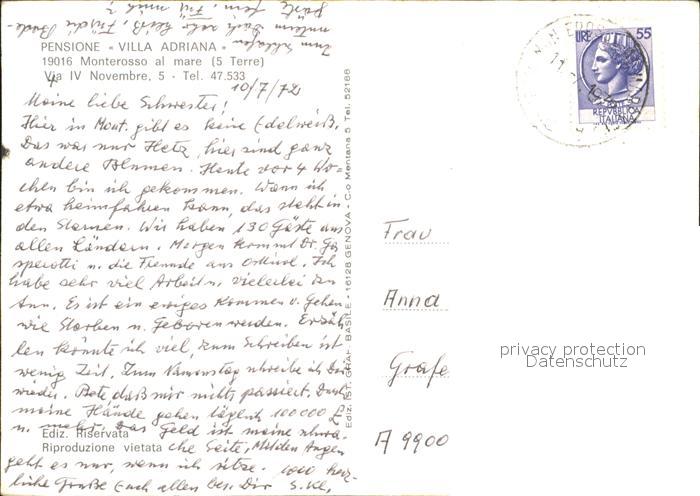 PENSIONE « VILLA ADRIANA »
19016 Monterosso al mare (5 Terre)
Via IV Novembre, 5 - Tel. 47.533
10/7/72
Meine liebe Schwester!
Hier in Mont. gibt es keine Edelweiß,
Das war nur Hetz, hier sind ganz
andere Blumen. Heute vor 4 Wo-
chen bin ich gekommen. Wann ich
etwa heimfahren kann, das steht in
den Sternen. Wir haben 130 Gäste aus
allen Ländern. Morgen kommt Dr. Gas
perotti u. die Freunde aus Osttirol. Ich
habe sehr viel Arbeit u. vielerlei zu
tun. Es ist ein ewiges Kommen u. Gehen
wie Sterben u. Geboren werden. Erzäh
len könnte ich viel, zum Schreiben ist
wenig Zeit. Zum Namenstag schreibe ich Dir
wieder. Bete, daß mir nichts passiert. Durch
meine Hände gehen täglich 100000 £
u. mehr. Das Geld ist meine schwa-
che Seite, Mit den Augen
geht es nur, wenn ich sitze. 1000 herz-
liche Grüße Euch allen bes. Dir
Ediz. Riservata
Riproduzione vietata
Ediz. IST. GRAF. BASILE - 16128 GENOVA - C-o Mentana 5 Tel. 52188
LIRE 55
REPVBBLICA
ITALIANA
Frau
Anna
Grafe
A 9900
privacy protection
Datenschutz